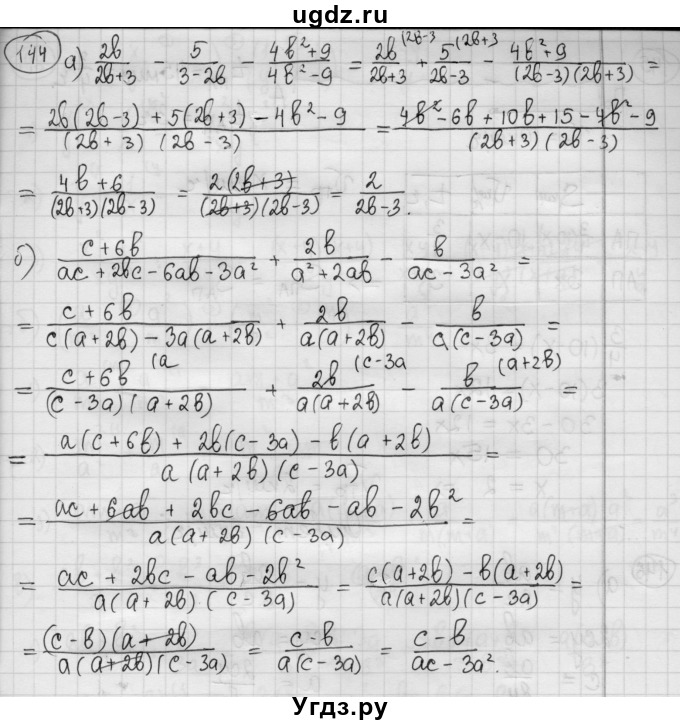 ugdz.ru
144 а) 2b/(2b+3) - 5/(3-2b) - (4b²+9)/(4b²-9) = 2b(2b-3/(2b+3) + 5(2b+3/(2b-3) - (4b²+9)/((2b-3)(2b+3)) =
= (2b(2b-3) + 5(2b+3) - 4b² - 9)/((2b+3)(2b-3)) = (4b² - 6b + 10b + 15 - 4b² - 9)/((2b+3)(2b-3))
= (4b+6)/((2b+3)(2b-3)) = 2(2b+3)/((2b+3)(2b-3)) = 2/(2b-3).
б) (c+6b)/(ac+2bc-6ab-3a²) + 2b/(a²+2ab) - b/(ac-3a²) =
= (c+6b)/(c(a+2b)-3a(a+2b)) + 2b/(a(a+2b)) - b/(a(c-3a)) =
= (c+6b (a)/((c-3a)(a+2b)) + 2b (c-3a/(a(a+2b)) - b (a+2b)/(a(c-3a)) =
= (a(c+6b) + 2b(c-3a) - b(a+2b))/(a(a+2b)(c-3a)) =
= (ac + 6ab + 2bc - 6ab - ab - 2b²)/(a(a+2b)(c-3a)) =
= (ac + 2bc - ab - 2b²)/(a(a+2b)(c-3a)) = (c(a+2b) - b(a+2b))/(a(a+2b)(c-3a)) =
= (c-b)(a+2b)/(a(a+2b)(c-3a)) = (c-b)/(a(c-3a)) = (c-b)/(ac-3a²).
Угдз.ру